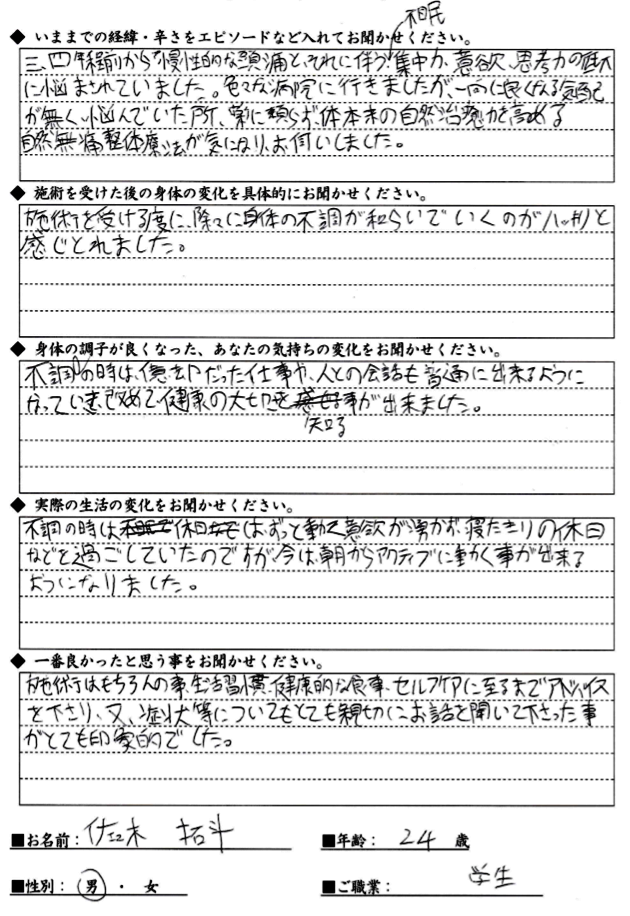 不眠
◆ いままでの経緯・辛さをエピソードなど入れてお聞かせください。
三、四年程前から慢性的な頭痛と、それに伴う集中力、意欲、思考力の低下
に悩まされていました。色々な病院に行きましたが、一向に良くなる気配
が無く、悩んでいた所、薬に頼らず、体本来の自然治癒力を高める
自然無痛整体療法が気になり、お伺いしました。
◆ 施術を受けた後の身体の変化を具体的にお聞かせください。
施術を受ける度に、除々に身体の不調が和らいでいくのがハッキリと
感じとれました。
◆ 身体の調子が良くなった、あなたの気持ちの変化をお聞かせください。
不調の時は、億劫だった仕事や、人との会話も普通に出来るように
なっていき、改めて健康の大切さを知る事が出来ました。
◆ 実際の生活の変化をお聞かせください。
不調の時は休日はずっと動く意欲が湧かず、寝たきりの休日
などを過ごしていたのですが、今は、朝からアクティブに動く事が出来る
ようになりました。
◆ 一番良かったと思う事をお聞かせください。
施術はもちろんの事、生活習慣、健康的な食事、セルフケアに至るまでアドバイス
を下さり、又、症状等についてもとても親切にお話を聞いて下さった事
がとても印象的でした。
■お名前: 佐々木 拓斗 ■年齢: 24 歳
■性別: 男 ・ 女 ■ご職業: 学生